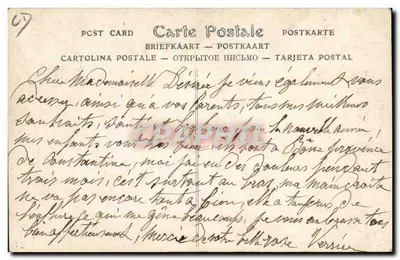 67
POST CARD Carte Postale POSTKARTE
BRIEFKAART — POSTKAART
CARTOLINA POSTALE — ОТКРЫТОЕ ПИСЬМО — TARJETA POSTAL
Chere Mademoiselle Désirée je viens également vous
adresser, ainsi qu'a vos parents, tous mes meilleurs
souhaits, santé la nouvelle année
mes enfants vont ils sont a Bône province
de Constantine, moi j'ai eu des douleurs pendant
trois mois, c'est surtout au bras, ma main droite
ne va pas encore tout a bien, elle a toujours de
ce qui me gêne beaucoup, je vous embrasse tous
bien affectueusement, merci de votre belle rose Verrier